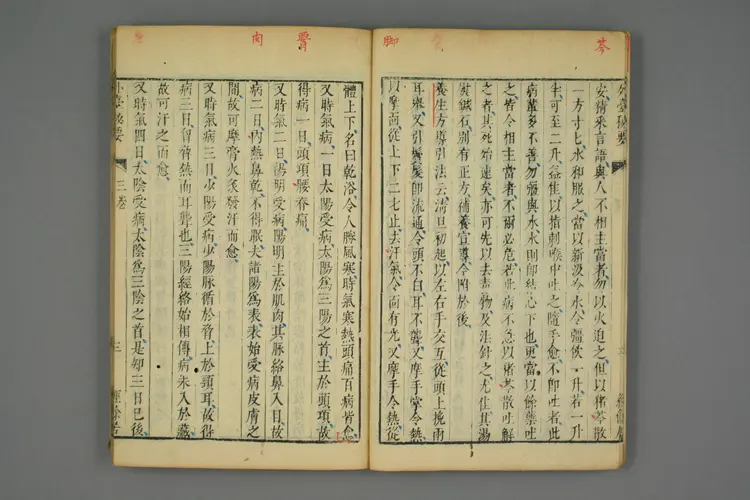 苓
脚
膏
肉
外臺秘要
安稱采言語與人不相主當者勿以火迫之但以豬苓散
一方寸匕水和服之當以新汲冷水令彊飲一升若一升
半可至二升益佳以指刺喉中吐之隨手愈不卽吐者此
病輩多不善勿彊與水水則卽結心下也更當以餘藥吐
之皆令相主當者不爾必危若此病不急以豬苓散吐解
之者其死殆速矣亦可先以去毒物及法針之尤佳其湯
熨針石別有正方補養宣導今附於後
養生方導引法云清旦初起以左右手交互從頭上挽兩
耳舉又引鬢髮卽流通令頭不白耳不聾又摩手掌令熱
以摩面從上下二七止去汗氣令面有光又摩手令熱從
體上下名曰乾浴令人勝風寒時氣寒熱頭痛百病皆愈
又時氣病一日太陽受病太陽爲三陽之首主於頭項故
得病一日頭項腰脊痛
又時氣二日陽明受病陽明主於肌肉其脉絡鼻入目故
病二日內熱鼻乾不得眠夫諸陽爲表表始受病皮膚之
間故可摩膏火灸發汗而愈
又時氣病三日少陽受病少陽脉循於脅上於頸耳故得
病三日胷脅熱而耳聾也三陽經絡始相傳病未入於藏
故可汗之而愈
又時氣四日太陰受病太陰爲三陰之首是知三日已後
外臺秘要
三卷
三
經餘居